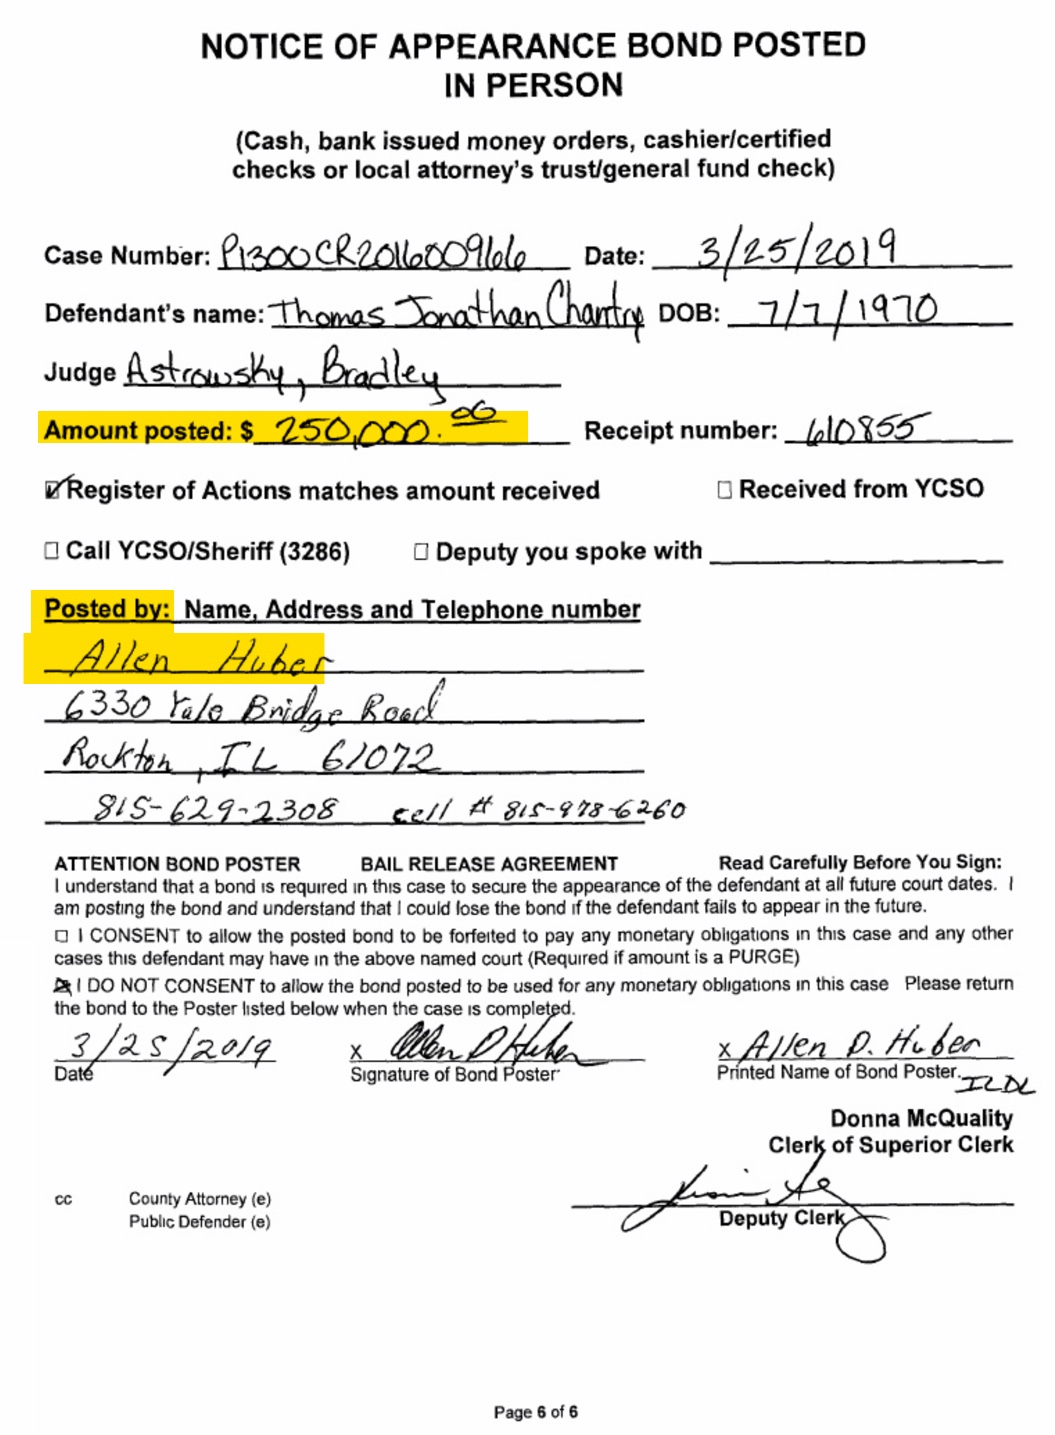 NOTICE OF APPEARANCE BOND POSTED
IN PERSON
(Cash, bank issued money orders, cashier/certified
checks or local attorney's trust/general fund check)
Case Number: P1300CR201600966 Date: 3/25/2019
Defendant's name: Thomas Jonathan Chantry DOB: 7/7/1970
Judge Astrowsky, Bradley
Amount posted: $ 250,000.00 Receipt number: 610855
☑ Register of Actions matches amount received ☐ Received from YCSO
☐ Call YCSO/Sheriff (3286) ☐ Deputy you spoke with
Posted by: Name, Address and Telephone number
Allen Huber
6330 Yale Bridge Road
Rockton, IL 61072
815-629-2308 cell # 815-978-6260
ATTENTION BOND POSTER BAIL RELEASE AGREEMENT Read Carefully Before You Sign:
I understand that a bond is required in this case to secure the appearance of the defendant at all future court dates. I
am posting the bond and understand that I could lose the bond if the defendant fails to appear in the future.
☐ I CONSENT to allow the posted bond to be forfeited to pay any monetary obligations in this case and any other
cases this defendant may have in the above named court (Required if amount is a PURGE)
☒ I DO NOT CONSENT to allow the bond posted to be used for any monetary obligations in this case Please return
the bond to the Poster listed below when the case is completed.
3/25/2019 x Allen D Huber x Allen D. Huber
Date Signature of Bond Poster Printed Name of Bond Poster.
ILDL
Donna McQuality
Clerk of Superior Clerk
cc County Attorney (e)
Public Defender (e)
Deputy Clerk
Page 6 of 6